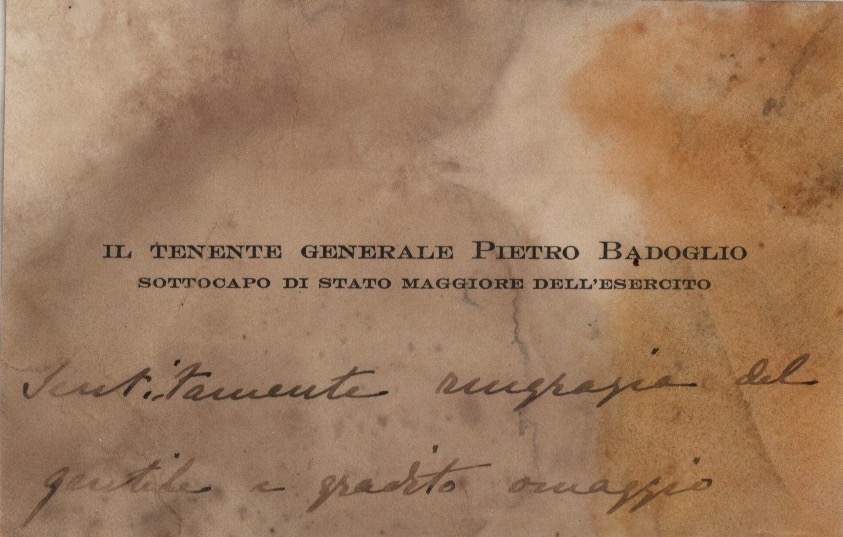 IL TENENTE GENERALE PIETRO BADOGLIO
SOTTOCAPO DI STATO MAGGIORE DELL'ESERCITO
Sentitamente ringrazia del
gentile e gradito omaggio